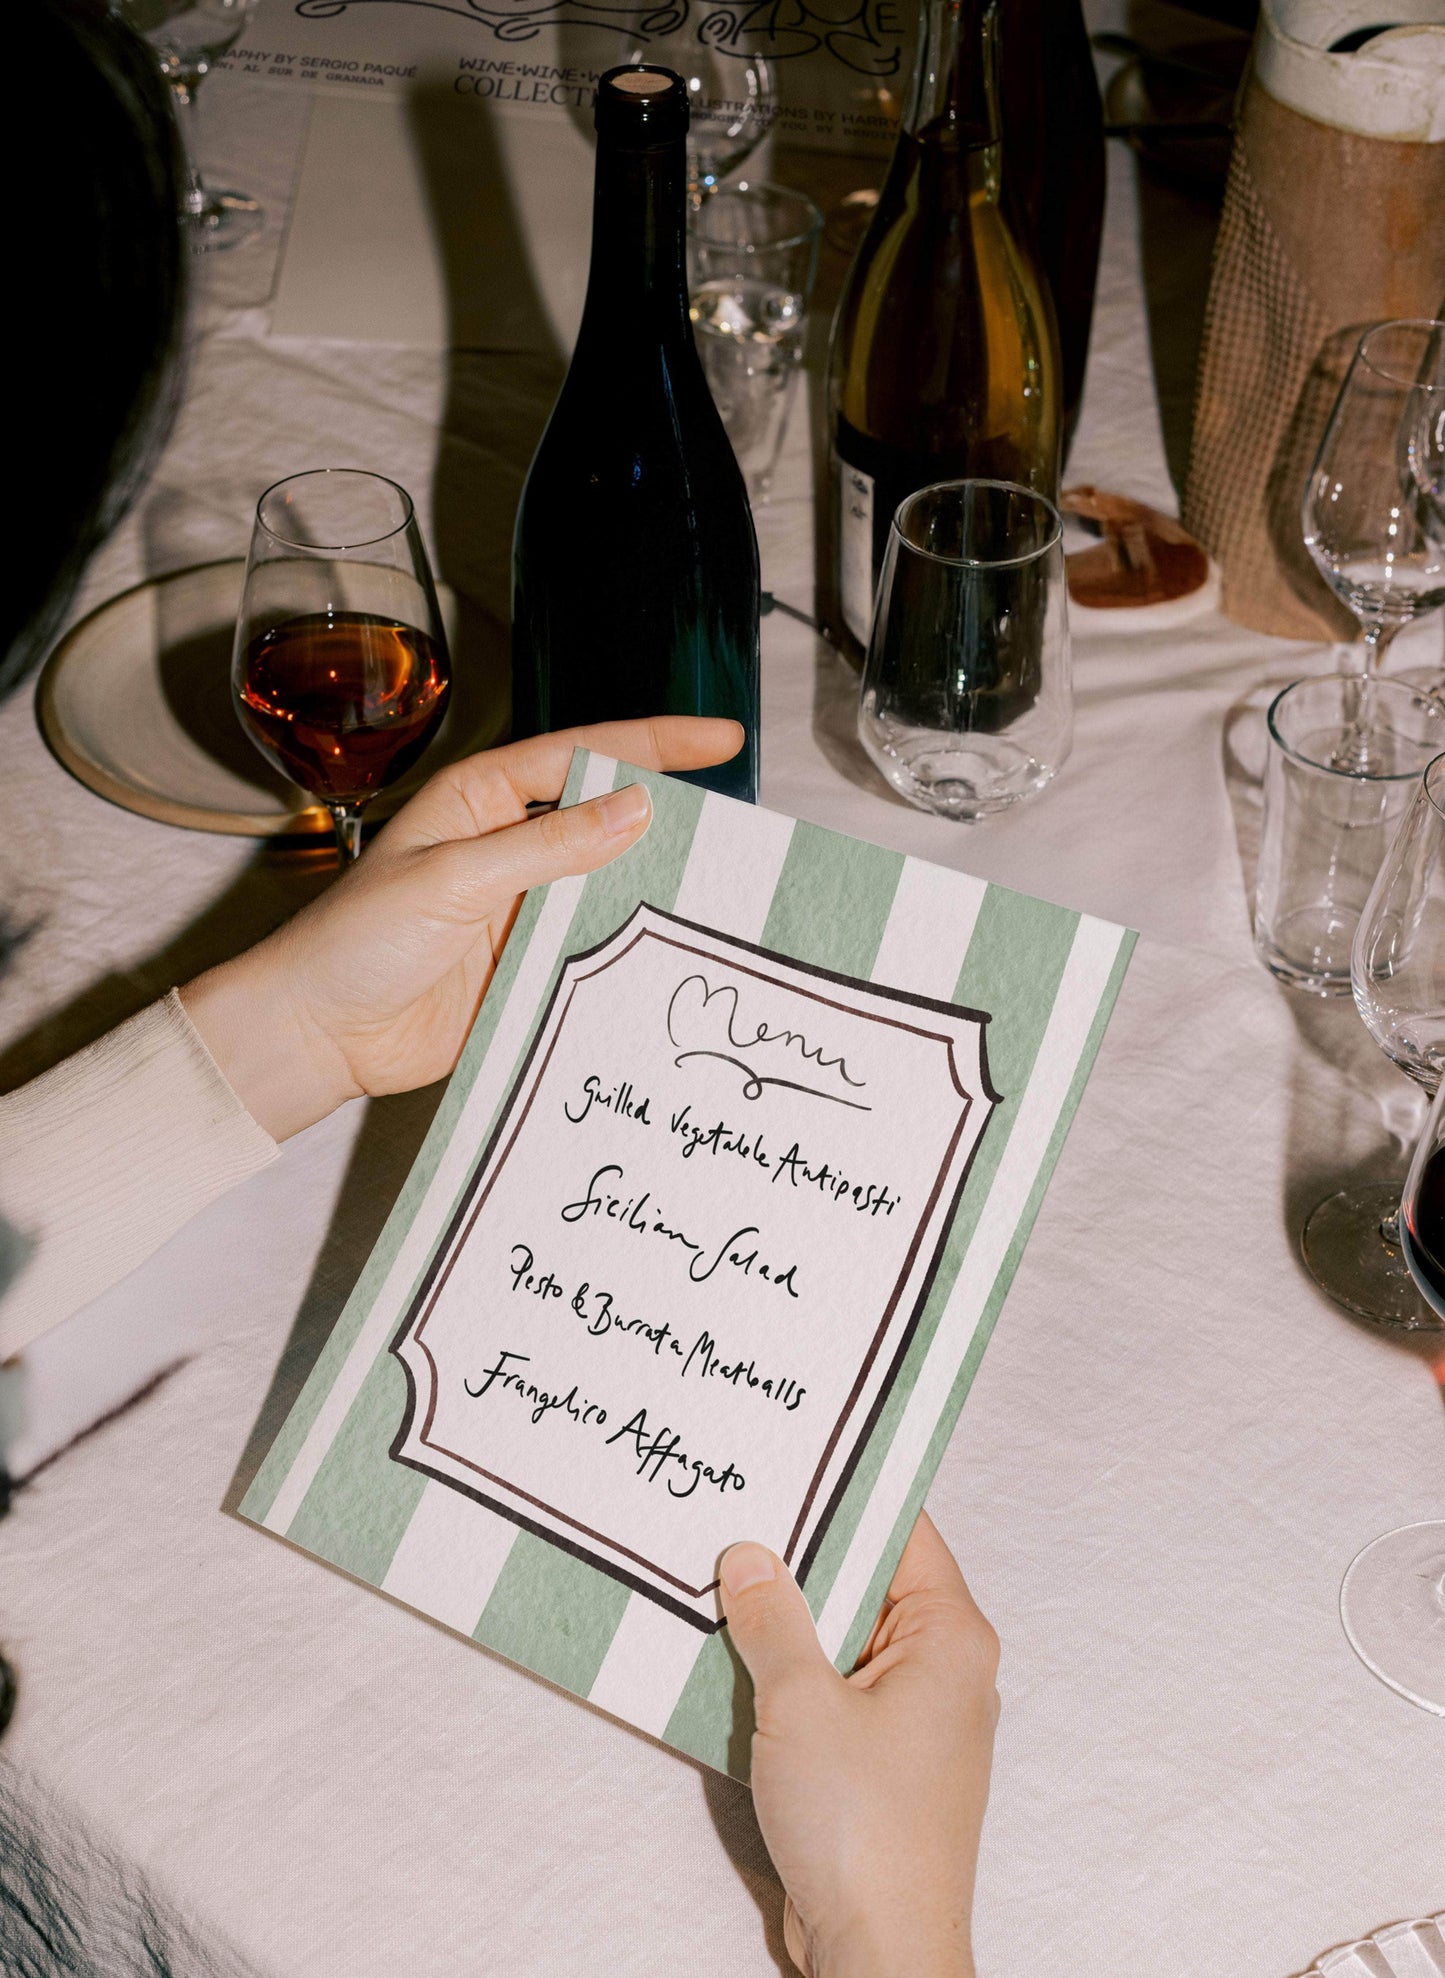 APHY BY SERGIO PAQUÉ
ON: AL SUR DE GRANADA
WINE•WINE•W
COLLECTI
LUSTRATIONS BY HARRY
OUGHT TO YOU BY BENDIT
Menu
Grilled Vegetable Antipasti
Sicilian Salad
Pesto & Burrata Meatballs
Frangelico Affagato